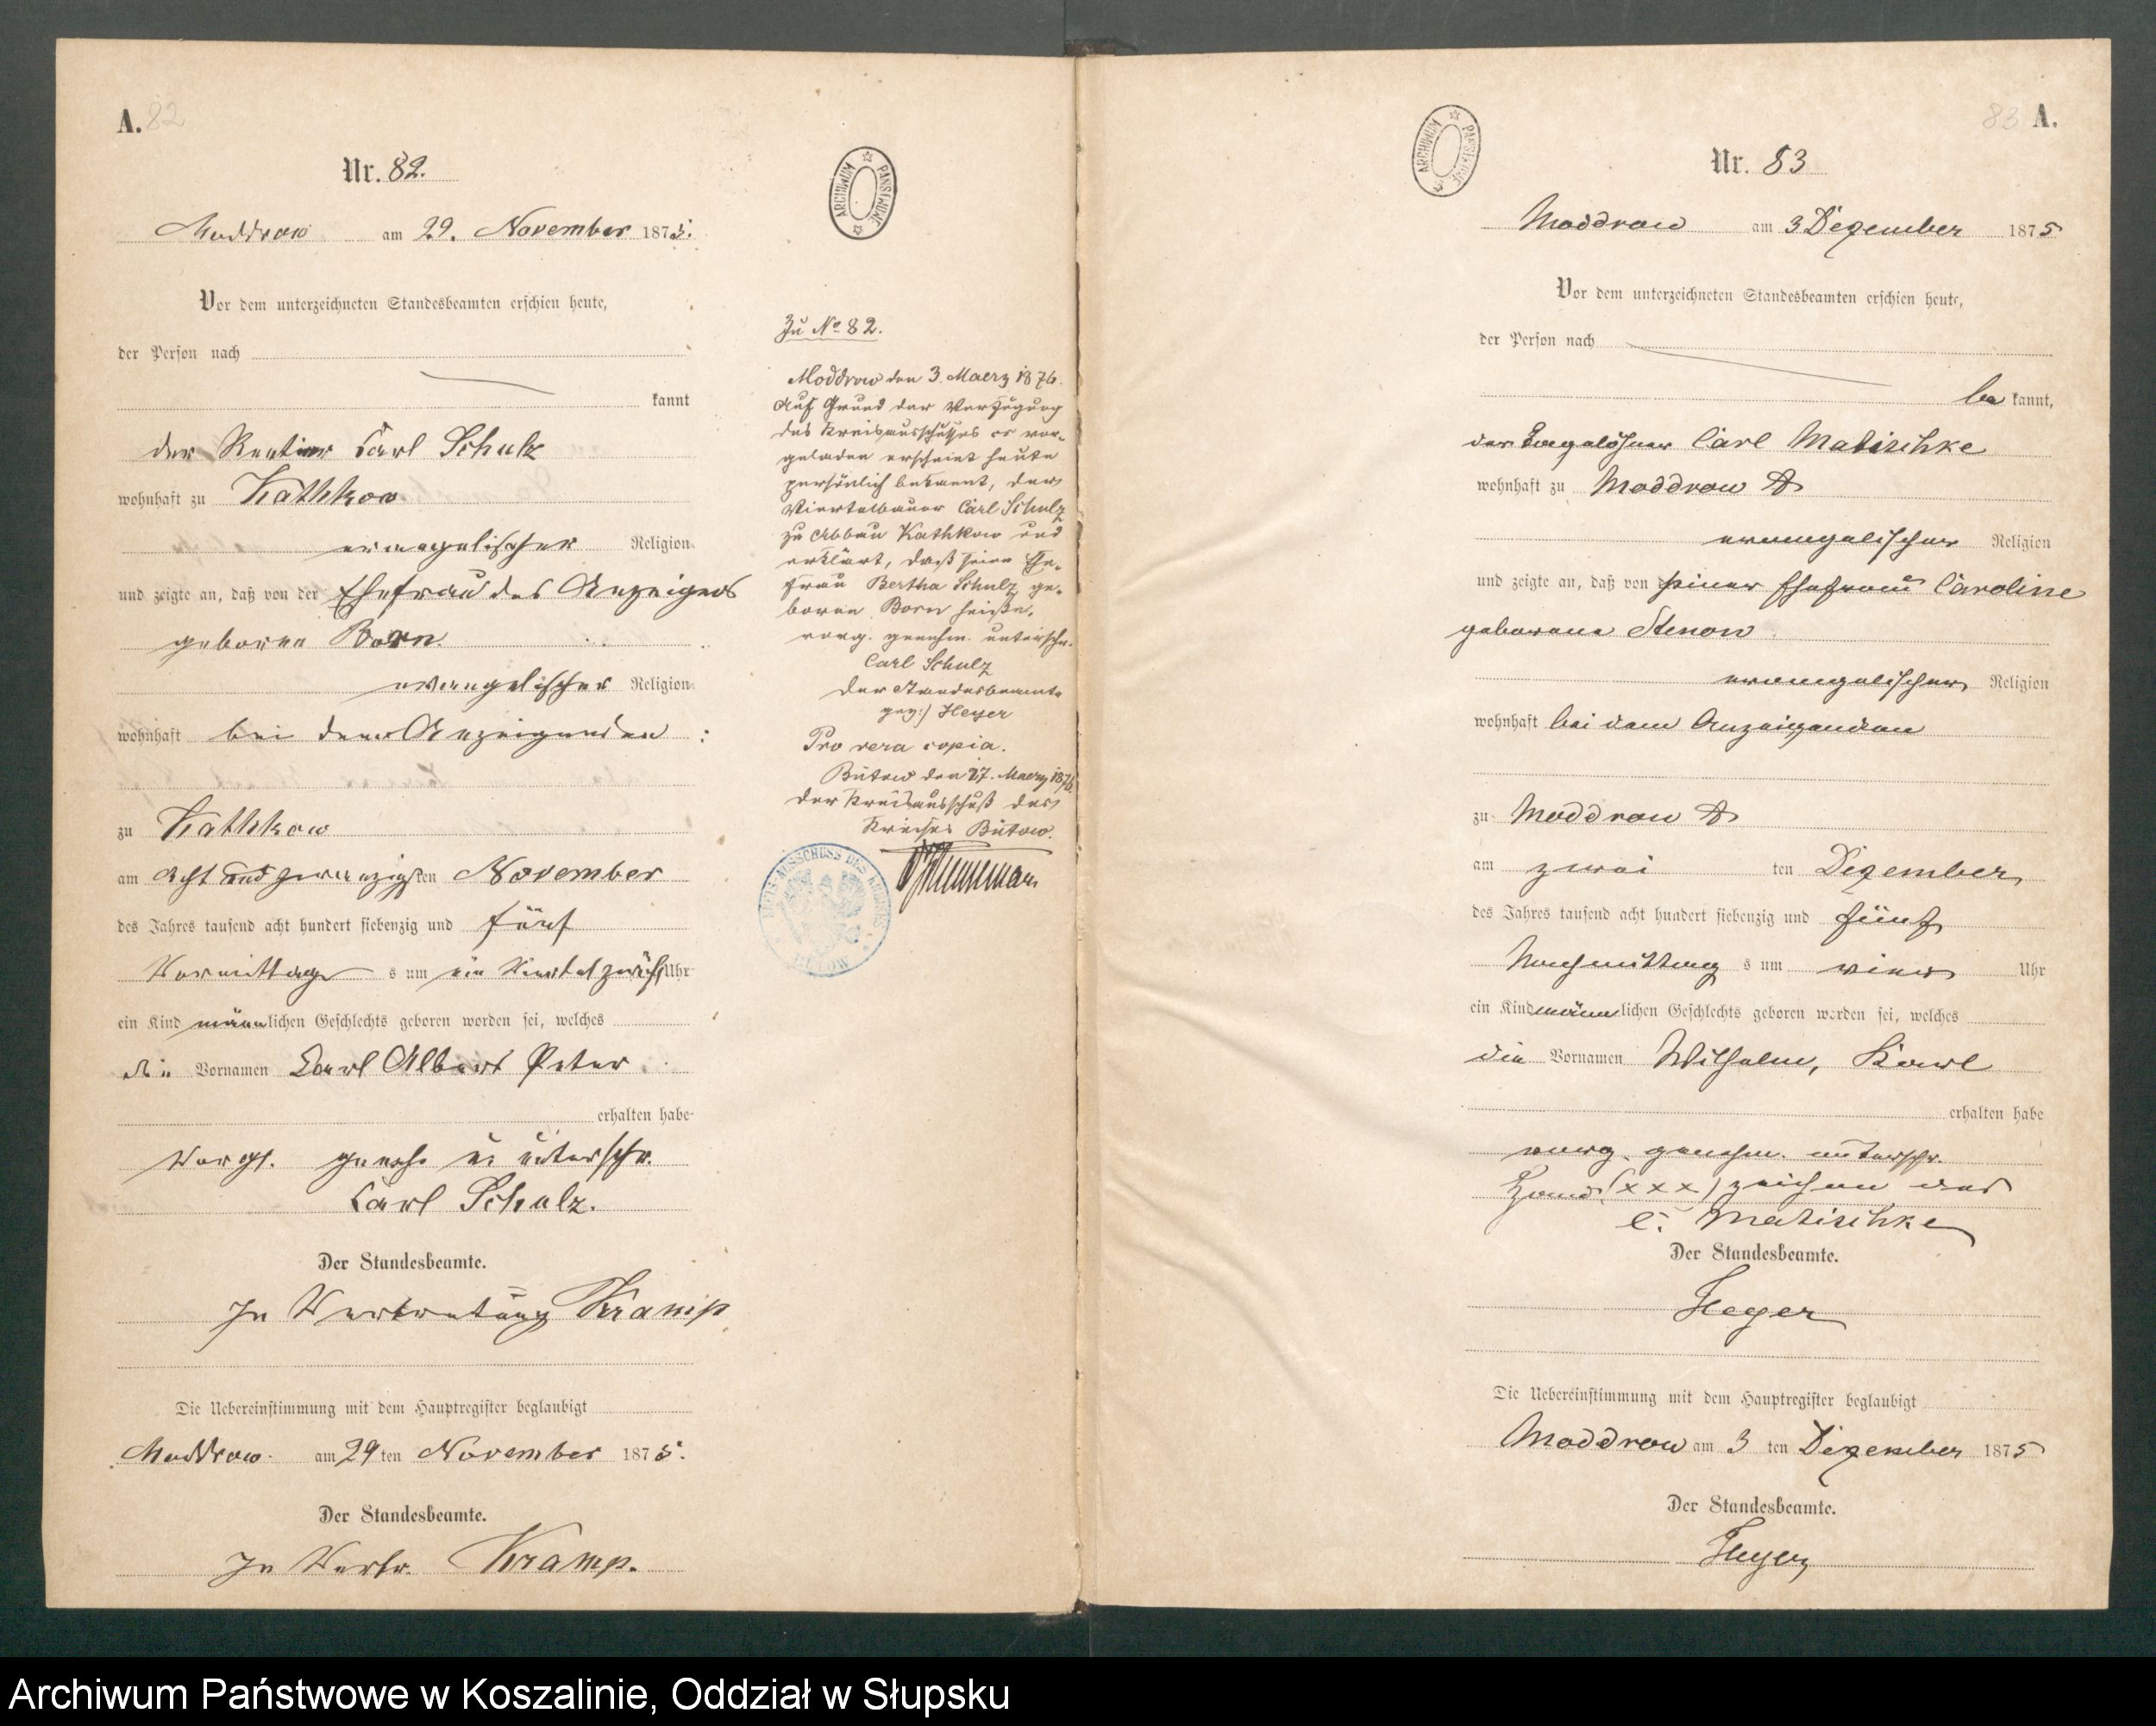 A. 82
Nr. 82.
Moddrow am 29. November 1875.
Vor dem unterzeichneten Standesbeamten erschien heute,
der Person nach
kannt
der Rentier Carl Schulz
wohnhaft zu Kathkow
evangelischer Religion
und zeigte an, daß von der Ehefrau des Anzeigers
geborne Born.
evangelischer Religion
wohnhaft bei dem Anzeigenden :
zu Kathkow
am acht und zwanzigsten November
des Jahres tausend acht hundert siebenzig und fünf
Vormittags um ein Viertel zwölf Uhr
ein Kind männlichen Geschlechts geboren worden sei, welches
die Vornamen Carl Albert Peter
erhalten habe
Vorgl. geneh. u unterschr.
Carl Schulz.
Der Standesbeamte.
In Vertretung Kramp
Die Uebereinstimmung mit dem Hauptregister beglaubigt
Moddrow. am 29 ten November 1875.
Der Standesbeamte.
In Vertr. Kramp.
ARCHIWUM PAŃSTWOWE
Zu No 82.
Moddrow den 3. Maerz 1876.
Auf Grund der Verfügung
des Kreisausschusses es vor-
geladen erscheint heute
persönlich bekannt, der
Viertelbauer Carl Schulz
zu Abbau Kathkow und
erklärt, daß seine Ehe-
frau Bertha Schulz ge-
borne Born heiße.
vorg. genehm. unterschr.
Carl Schulz
Der Standesbeamte
gez:) Heyer
Pro vera copia.
Bütow den 17. Maerz 1876.
Der Kreisausschuß des
Kreises Bütow.
KREIS-AUSSCHUSS DES KREISES BÜTOW
ARCHIWUM PAŃSTWOWE
83 A.
Nr. 83
Moddrow am 3 Dezember 1875
Vor dem unterzeichneten Standesbeamten erschien heute,
der Person nach
be kannt,
der Tagelöhner Carl Matischke
wohnhaft zu Moddrow A
evangelischer Religion
und zeigte an, daß von seiner Ehefrau Caroline
geborene Stenow
evangelischer Religion
wohnhaft bei dem Anzeigenden
zu Moddrow A
am zwei ten Dezember
des Jahres tausend acht hundert siebenzig und fünf
Nachmittag s um vier Uhr
ein Kind männlichen Geschlechts geboren worden sei, welches
die Vornamen Wilhelm, Karl
erhalten habe
vorg. genehm. unterschr.
Hand (xxx) zeichen des
C. Matischke
Der Standesbeamte.
Heyer
Die Uebereinstimmung mit dem Hauptregister beglaubigt
Moddrow am 3 ten Dezember 1875
Der Standesbeamte.
Heyer
Archiwum Państwowe w Koszalinie, Oddział w Słupsku